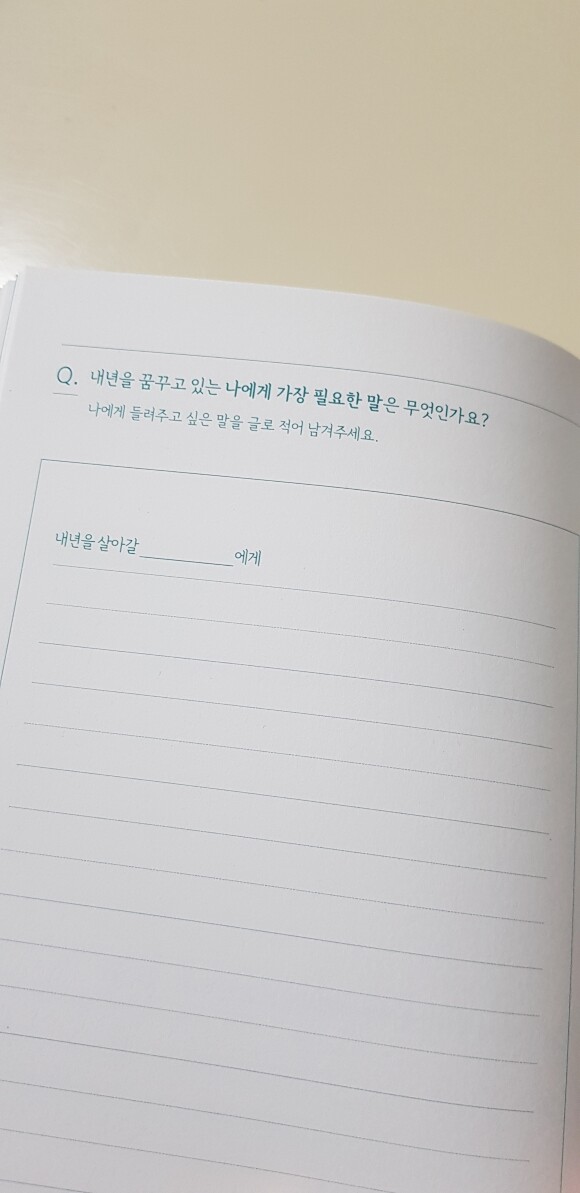 Q. 내년을 꿈꾸고 있는 나에게 가장 필요한 말은 무엇인가요?
나에게 들려주고 싶은 말을 글로 적어 남겨주세요.
내년을 살아갈__________에게